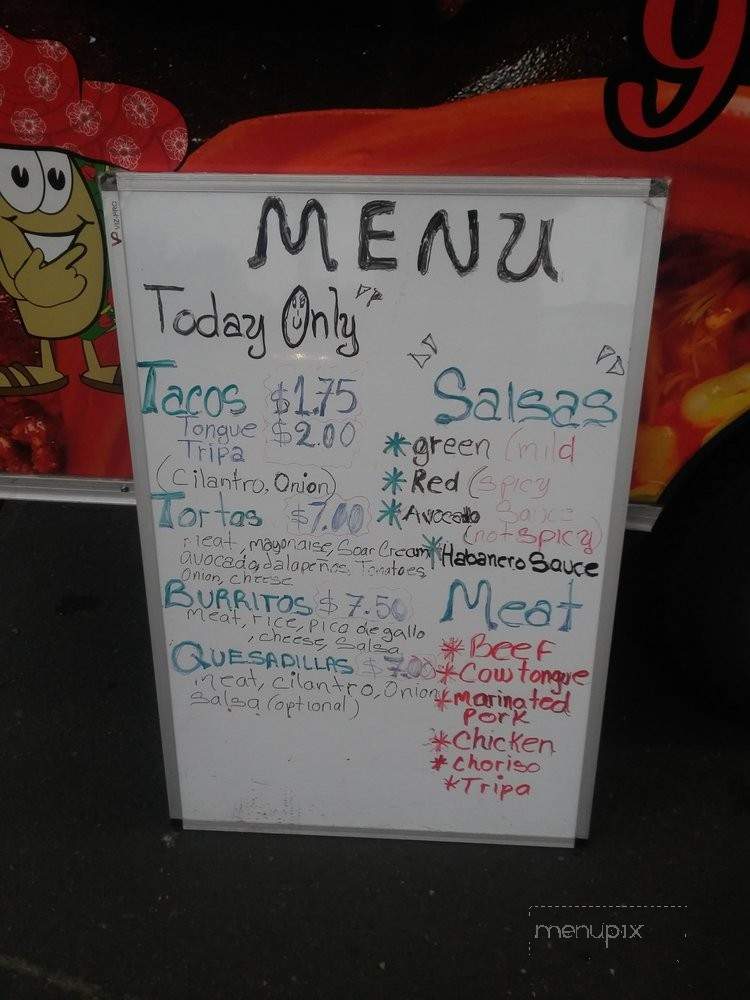 9
VIZ-PRO
MENU
Today Only
Tacos $1.75
Tongue $2.00
Tripa
(Cilantro, Onion)
Tortas $7.00
Meat, mayonaise, Soar Cream
avocado, Jalapeños, Tomatoes,
Onion, cheese
BURRITOS $7.50
Meat, rice, pico de gallo
, cheese, Salsa
QUESADILLAS $7.00
meat, cilantro, Onion
Salsa (optional)
Salsas
*green (mild
*Red (spicy
*Avocado Sauce
(not spicy)
*Habanero Sauce
Meat
*Beef
*Cow tongue
*marinated
Pork
*Chicken
*choriso
*Tripa
menupix